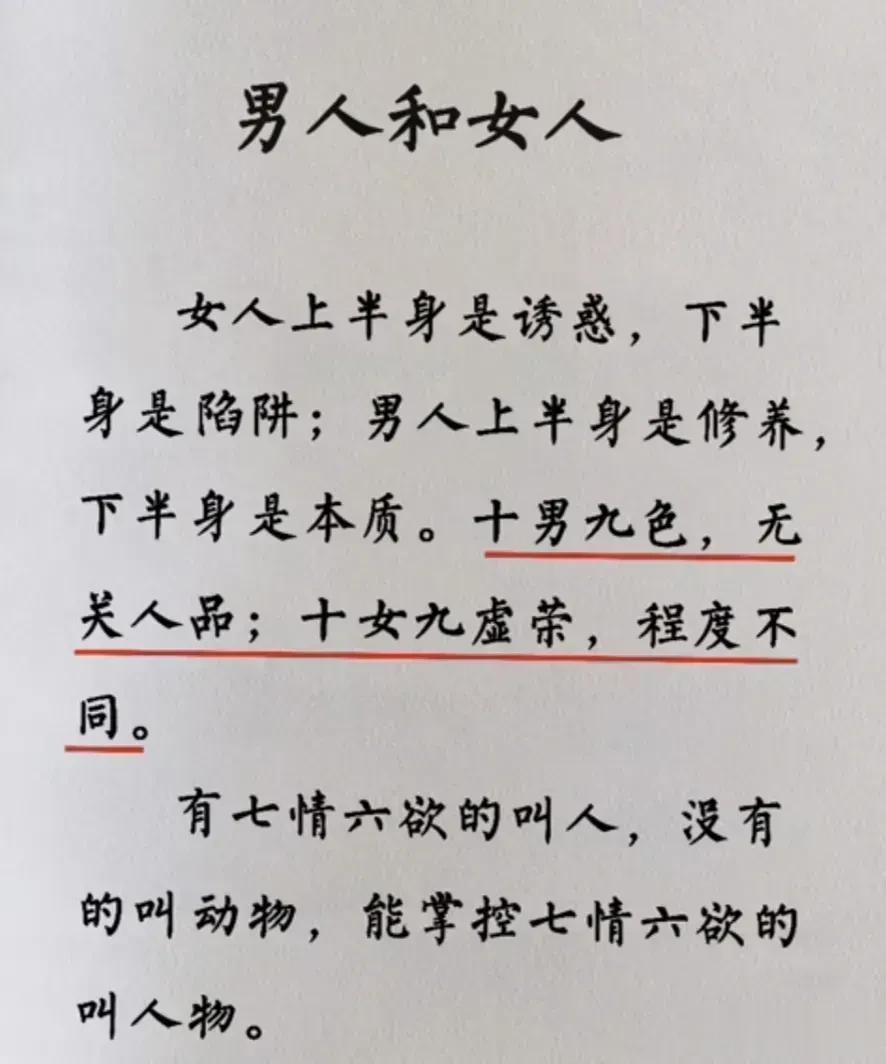 男人和女人
女人上半身是诱惑，下半
身是陷阱；男人上半身是修养，
下半身是本质。十男九色，无
关人品；十女九虚荣，程度不
同。
有七情六欲的叫人，没有
的叫动物，能掌控七情六欲的
叫人物。